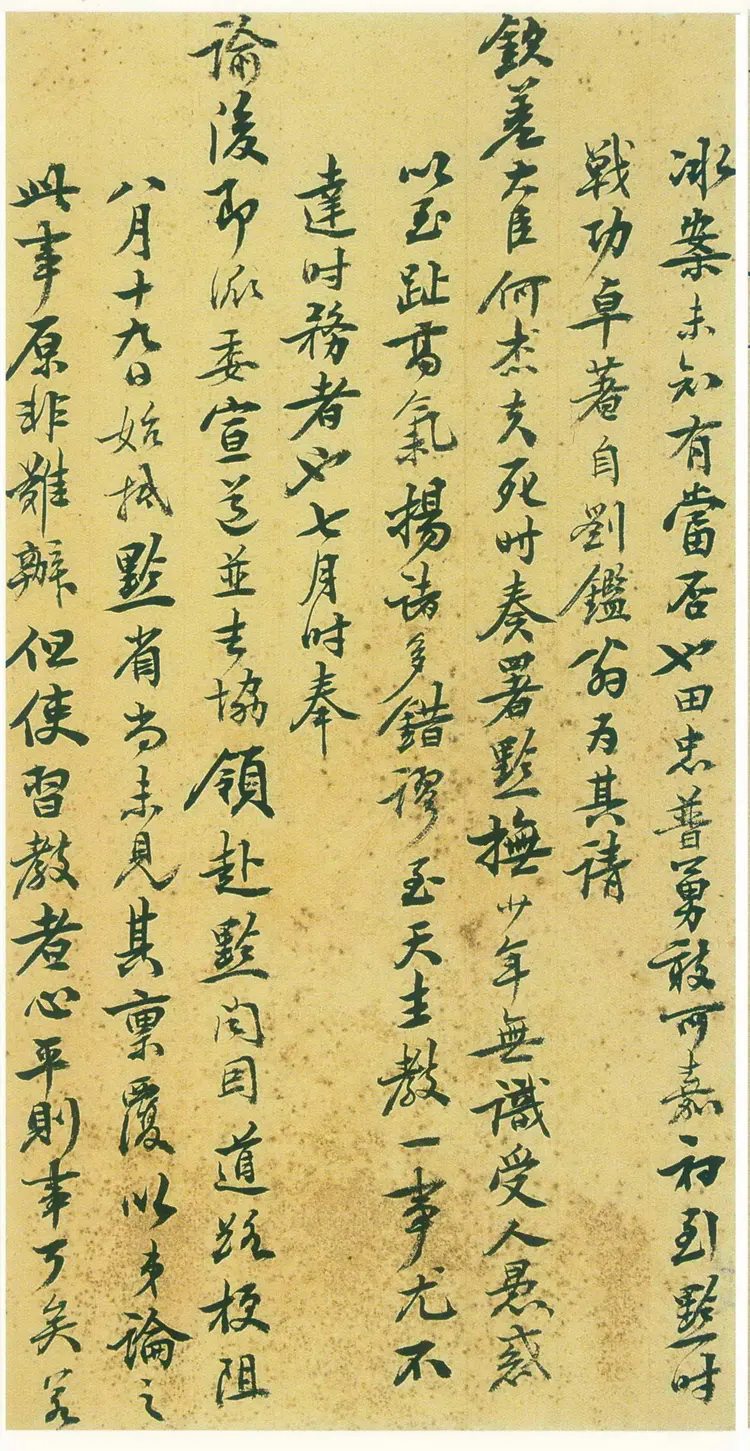 冰案未知有當否也田忠普勇敢可嘉初到黔时
戰功卓著自劉鑑翁为其請
欽差大臣何杰夫死时奏署黔撫少年無識受人愚惑
以至趾高氣揚諸多錯謬至天主教一事尤不
達时務者也七月时奉
諭後即派委宣道並生協領赴黔闵因道路梗阻
八月十九日始抵黔省尚未見其稟覆以弟論之
此事原非難辦但使習教者心平則事了矣若